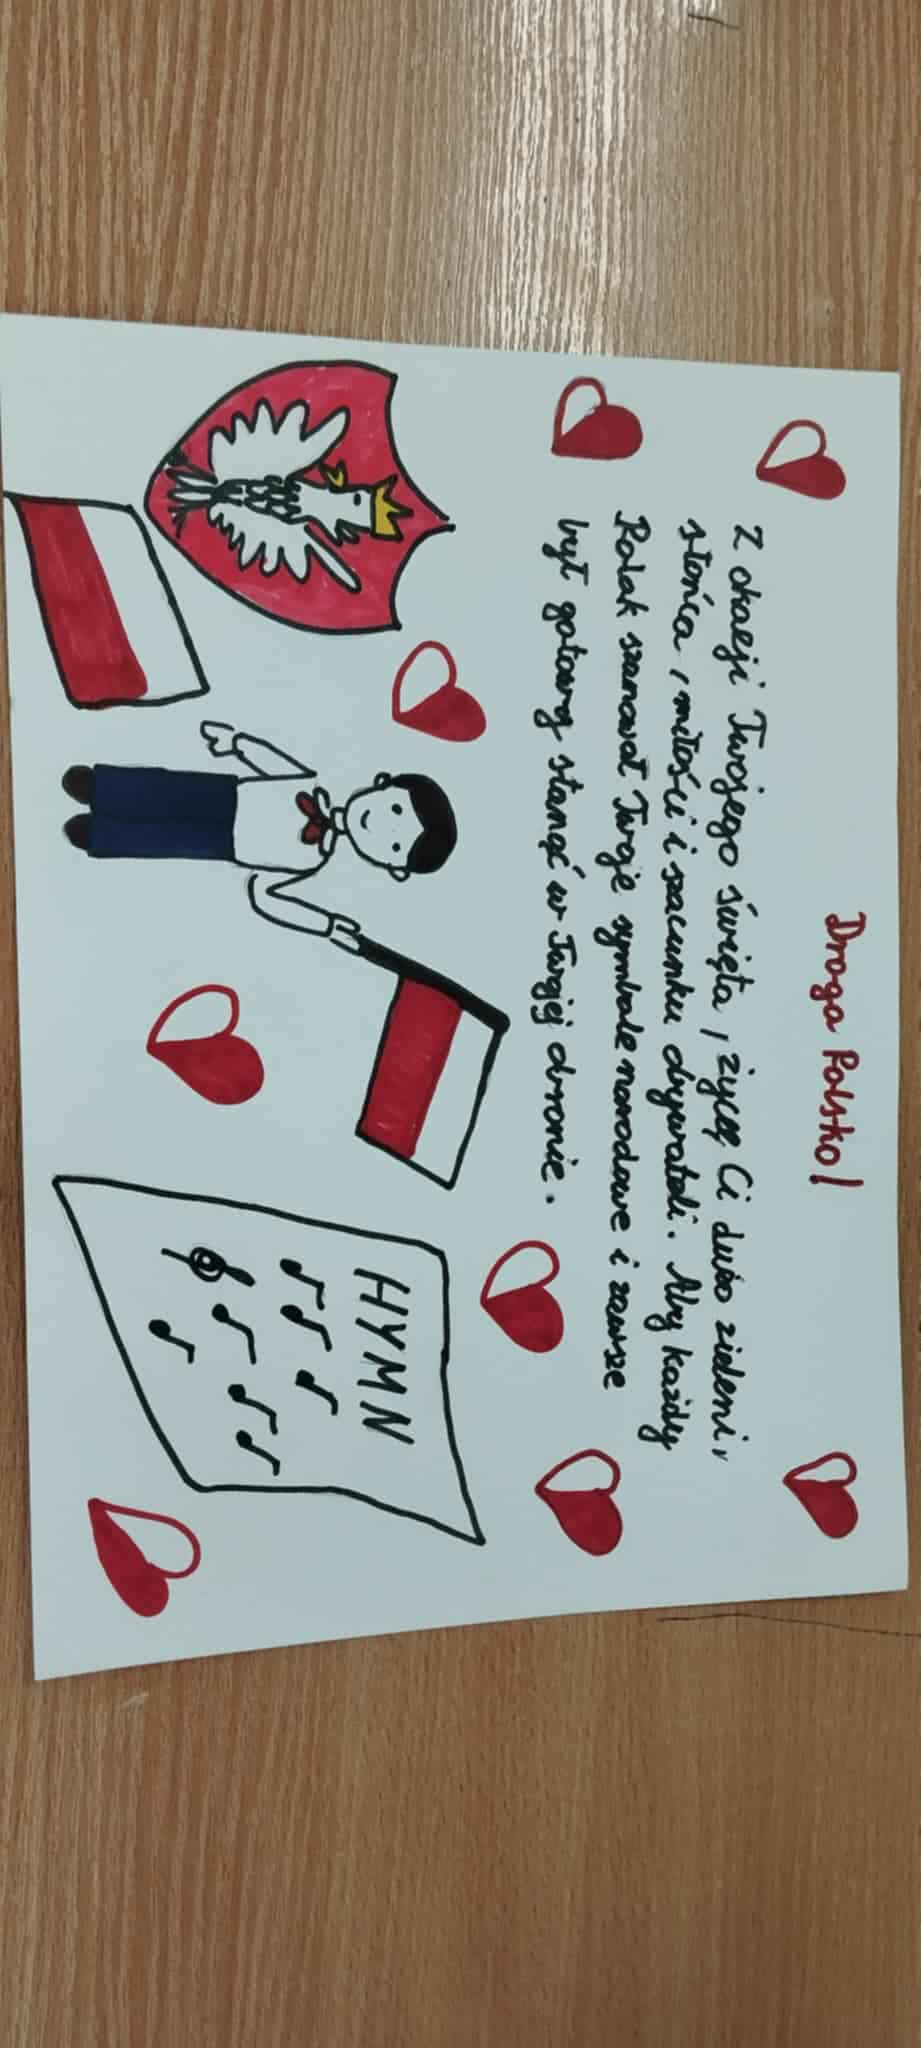 Droga Polsko!
Z okazji Twojego święta, życzę Ci dużo zieleni,
słońca, miłości i szacunku obywateli. Aby każdy
Polak szanował Twoje symbole narodowe i zawsze
był gotowy stanąć w Twojej obronie.
HYMN